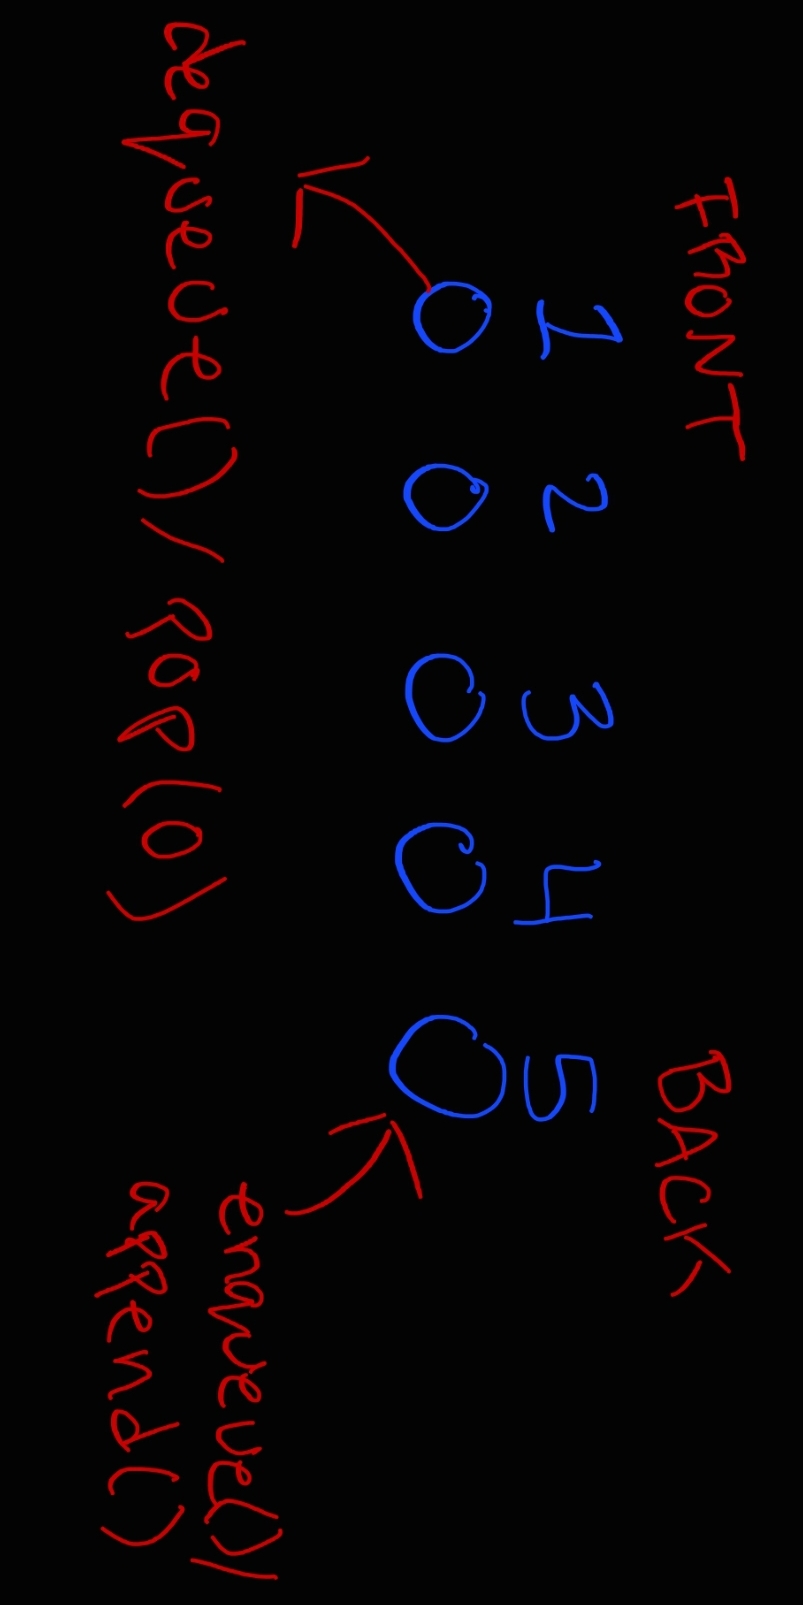 FRONT BACK
1 2 3 4 5
dequeue()/pop(0)
enqueue()/
append()